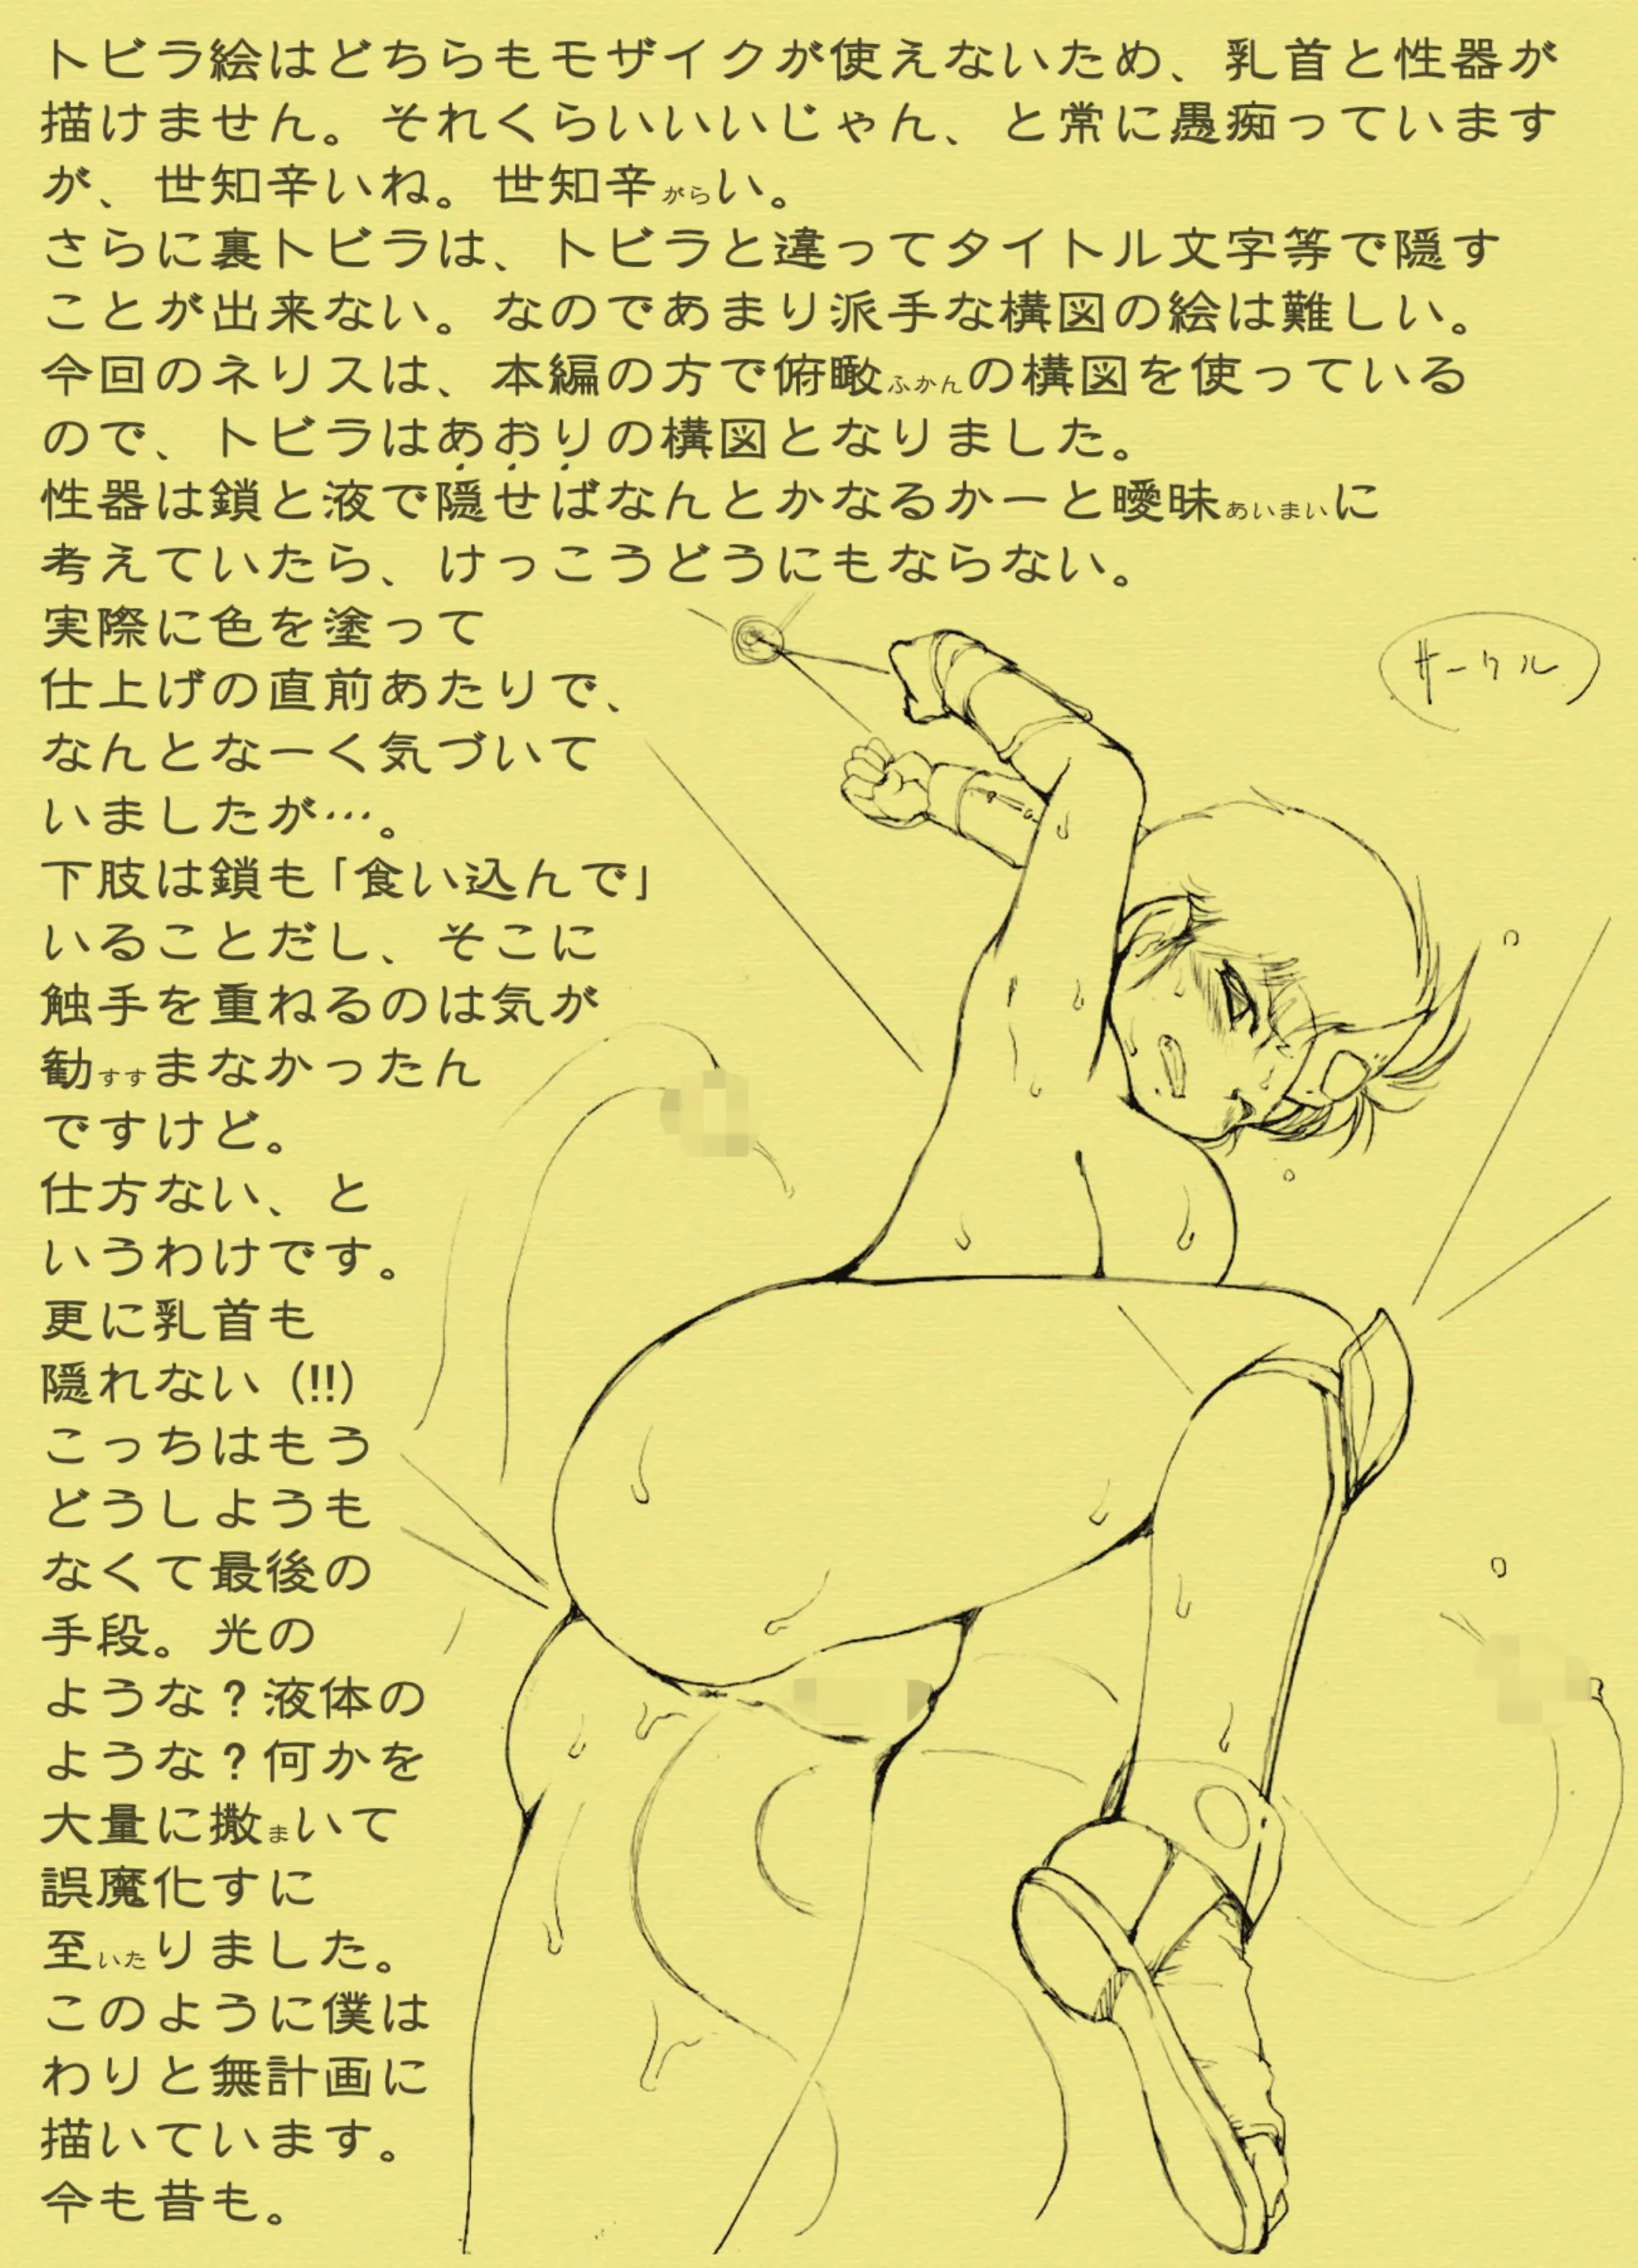 トビラ絵はどちらもモザイクが使えないため、乳首と性器が
描けません。それくらいいいじゃん、と常に愚痴っています
が、世知辛いね。世知辛がらい。
さらに裏トビラは、トビラと違ってタイトル文字等で隠す
ことが出来ない。なのであまり派手な構図の絵は難しい。
今回のネリスは、本編の方で俯瞰ふかんの構図を使っている
ので、トビラはあおりの構図となりました。
性器は鎖と液で隠せばなんとかなるかーと曖昧あいまいに
考えていたら、けっこうどうにもならない。
実際に色を塗って
仕上げの直前あたりで、
なんとなーく気づいて
いましたが…。
下肢は鎖も「食い込んで」
いることだし、そこに
触手を重ねるのは気が
勧すすまなかったん
ですけど。
仕方ない、と
いうわけです。
更に乳首も
隠れない（!!）
こっちはもう
どうしようも
なくて最後の
手段。光の
ような？液体の
ような？何かを
大量に撒まいて
誤魔化すに
至いたりました。
このように僕は
わりと無計画に
描いています。
今も昔も。
サークル